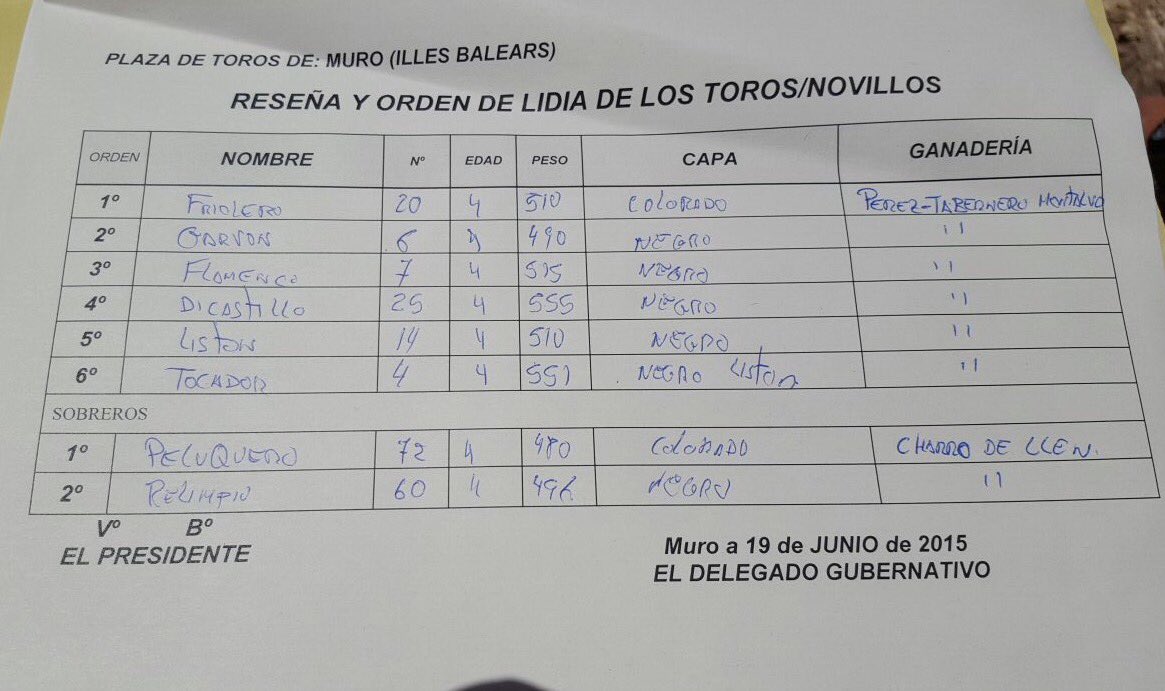 PLAZA DE TOROS DE: MURO (ILLES BALEARS)
RESEÑA Y ORDEN DE LIDIA DE LOS TOROS/NOVILLOS
ORDEN NOMBRE Nº EDAD PESO CAPA GANADERÍA
1º FRIOLERO 20 4 510 COLORADO PEREZ-TABERNERO MONTALVO
2º GARVON 6 4 490 NEGRO "
3º FLAMENCO 7 4 NEGRO "
4º DICASTILLO 25 4 555 NEGRO "
5º LISTON 14 4 510 NEGRO "
6º TOCADOR 4 4 551 NEGRO LISTON "
SOBREROS
1º PELUQUERO 72 4 480 COLORADO CHARRO DE LLEN.
2º RELIMPIO 60 4 496 NEGRO "
Vº Bº
EL PRESIDENTE
Muro a 19 de JUNIO de 2015
EL DELEGADO GUBERNATIVO